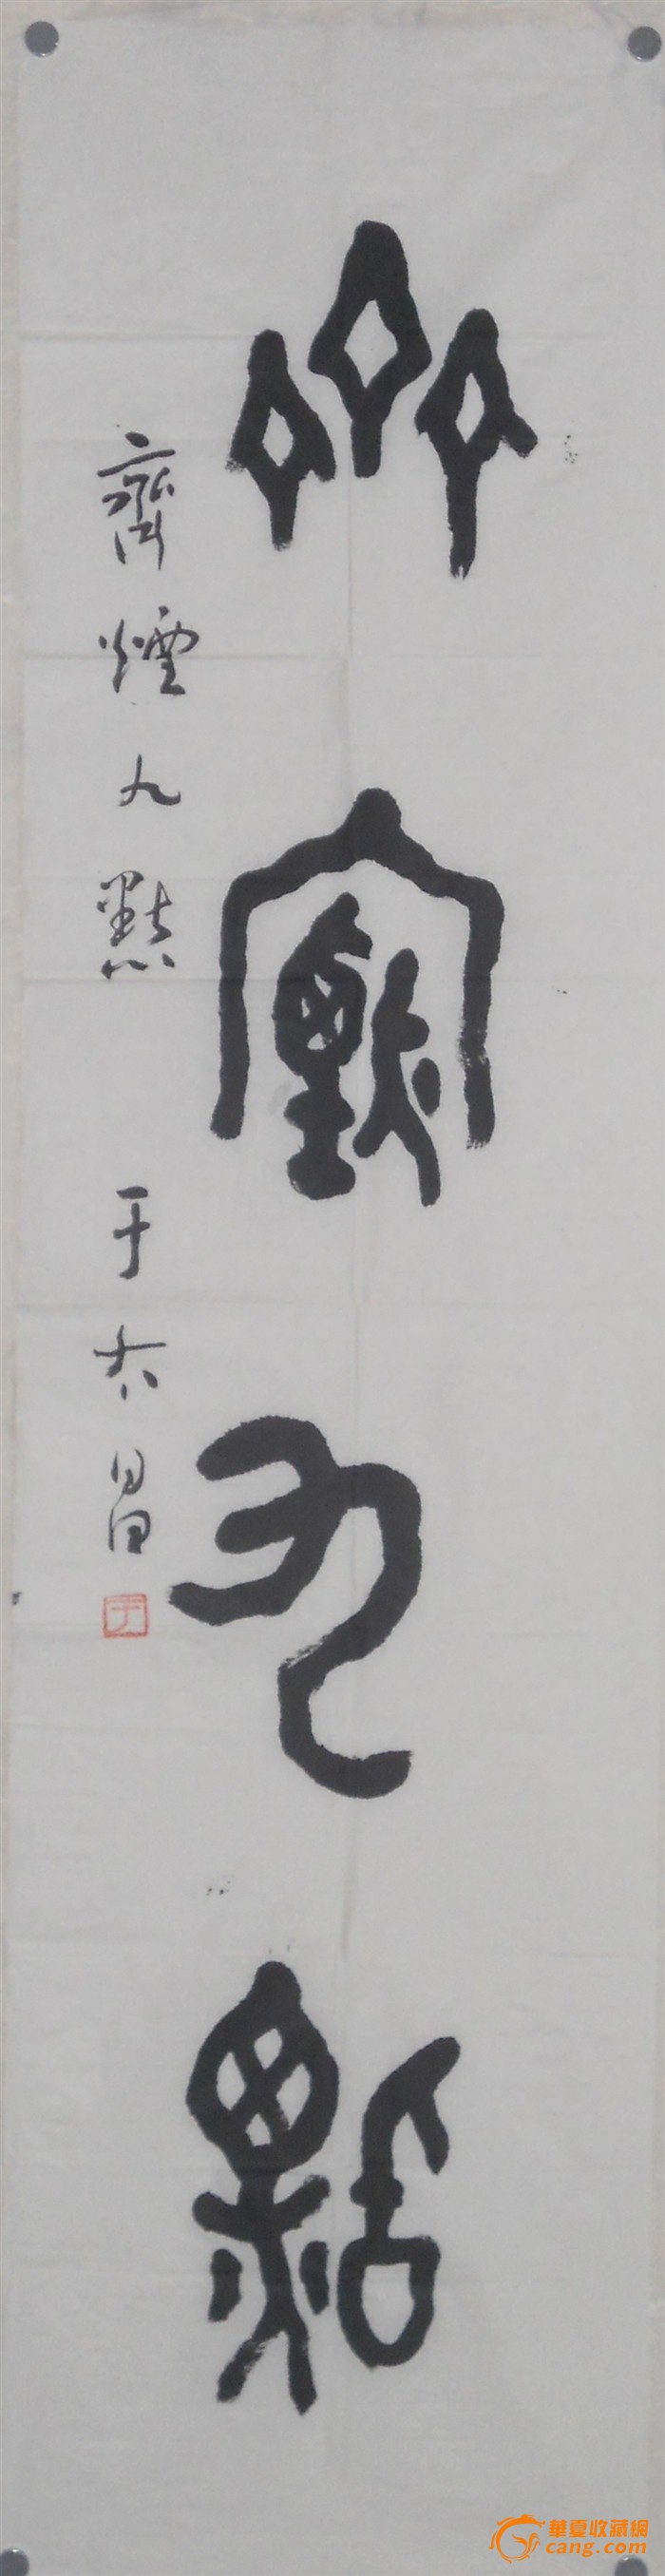 齊煙九點
齊煙九點
于右
華夏收藏網
cang.com